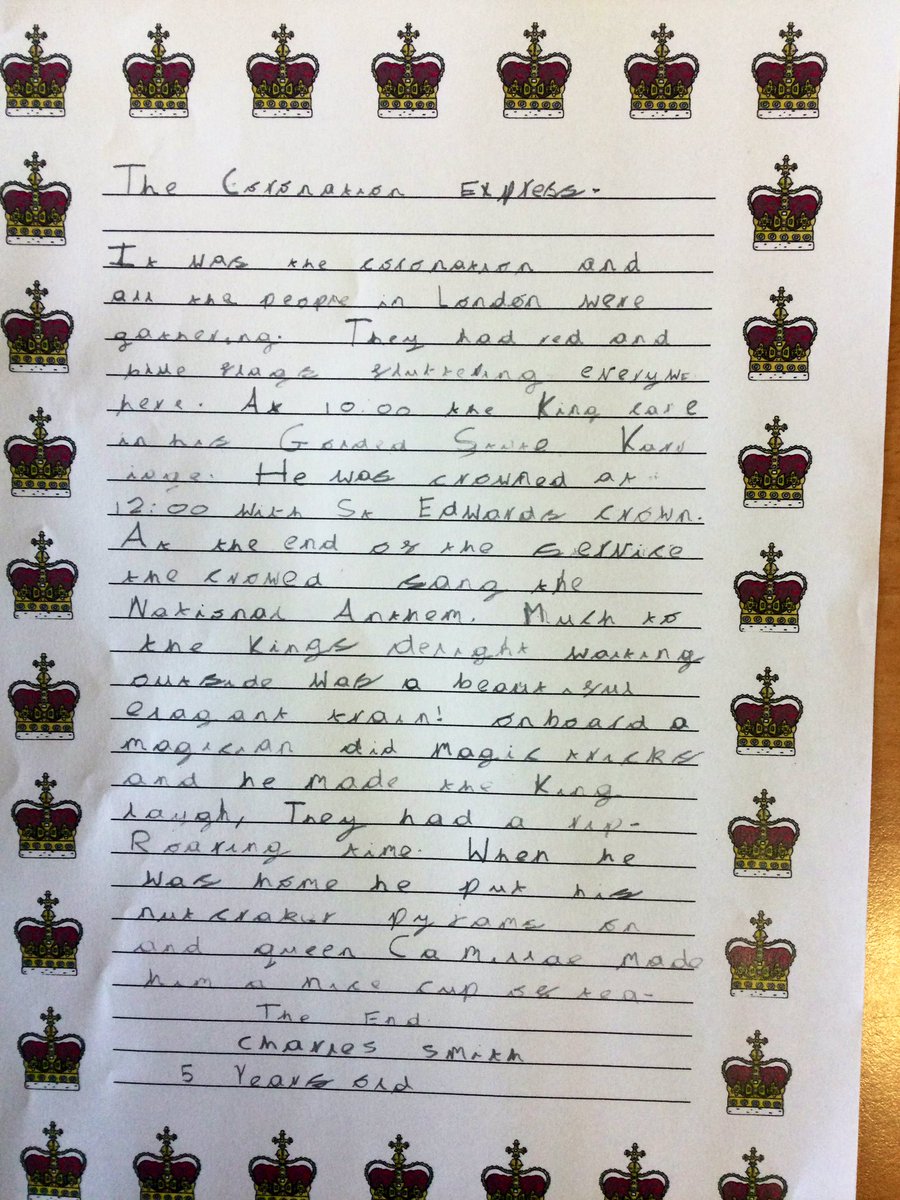 The Coronation Express.
It was the coronation and
all the people in London were
gathering. They had red and
blue flags fluttering everyw
here. At 10:00 the King care
in his Golded State Kare
iage. He was crowned at
12:00 with St Edwards crown.
At the end of the service
the crowed sang the
National Anthem. Much to
the Kings delight waiting
outside was a beautiful
elagant train! onboard a
magician did magic tricks
and he made the King
laugh, They had a rip-
Roaring time. When he
was home he put his
nutcrakur pyjams on
and queen Camillae made
him a nice cup of tea.
The End
Charles Smith
5 Years old